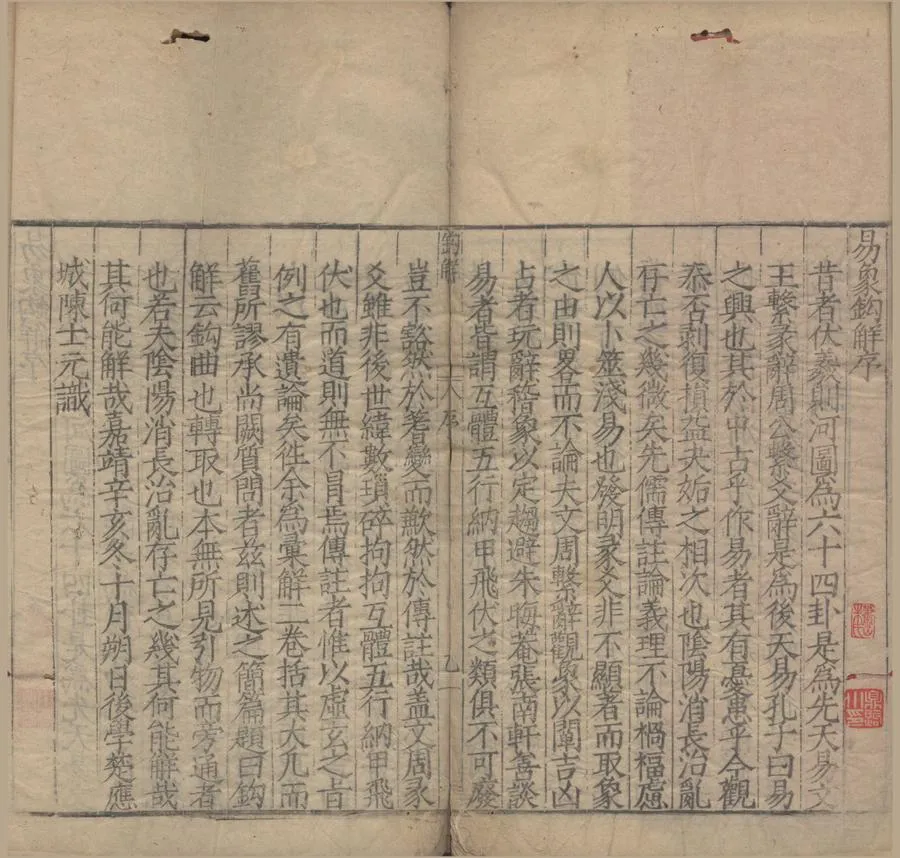 易象鈎解序
昔者伏羲則河圖為六十四卦是為先天易文
王繫彖辭周公繫爻辭是為後天易孔子曰易
之興也其於中古乎作易者其有憂患乎今觀
泰否剥復損益夬姤之相次也陰陽消長治亂
存亡之幾微矣先儒傳註論義理不論禍福慮
人以卜筮淺易也發明彖爻非不顯著而取象
之由則畧而不論夫文周繫辭觀象以闡吉凶
占者玩辭稽象以定趨避朱晦菴張南軒善談
易者皆謂互體五行納甲飛伏之類俱不可廢
鈎解
序
豈不谿然於著變而歉然於傳註哉盖文周彖
爻雖非後世緯數瑣碎拘拘互體五行納甲飛
伏也而道則無不冒焉傳註者惟以虛玄之旨
例之有遺論矣徃余為彙解二卷括其大凡而
舊所謬承尚闕質問者兹則述之簡篇題曰鈎
解云鈎曲也轉取也本無所見引物而旁通者
也若夫陰陽消長治亂存亡之幾其何能解哉
其何能解哉嘉靖辛亥冬十月朔日後學楚應
城陳士元識